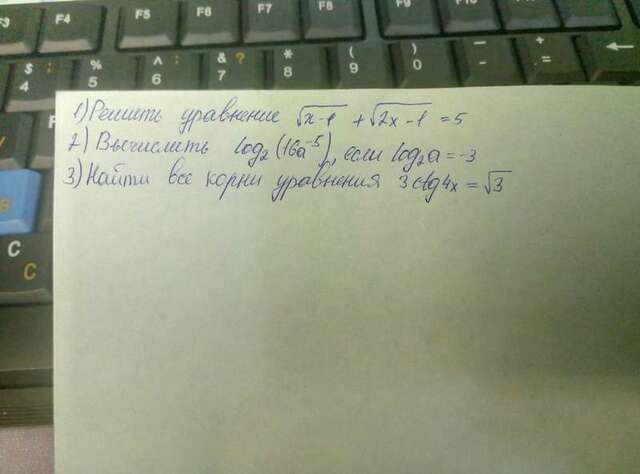 F3 F4 F5 F6 F7 F8 F9 F10
$ ; 4 % 5 ^ : 6 & ? 7 * 8 ( 9 ) 0 _ - + = ←
1) Решить уравнение √x-1 + √2x-1 = 5
2) Вычислить log₂(16a⁻⁵), если log₂a = -3
3) Найти все корни уравнения 3 ctg4x = √3
C
C